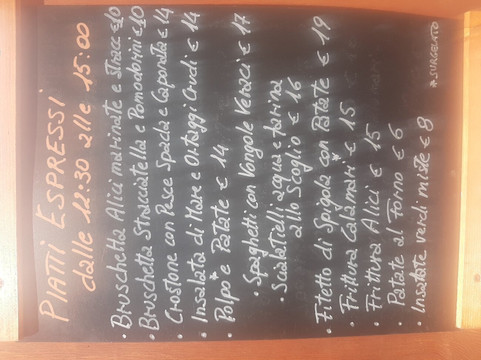 PIATTI ESPRESSI
dalle 12:30 alle 15:00
• Bruschetta Alici marinate e Stracc €10
• Bruschetta Stracciatella e Pomodorini €10
• Crostone con Pesce Spada e Caponata € 14
• Insalata di Mare e Ortaggi Crudi € 14
• Polpo e Patate € 14
• Spaghetti con Vongole Veraci € 17
• Scialatielli acqua e farina
allo Scoglio € 16
• Filetto di Spigola con Patate € 19
• Frittura Calamari* € 15
• Frittura Alici € 15
• Patate al Forno € 6
• Insalate verdi miste € 8
*SURGELATO